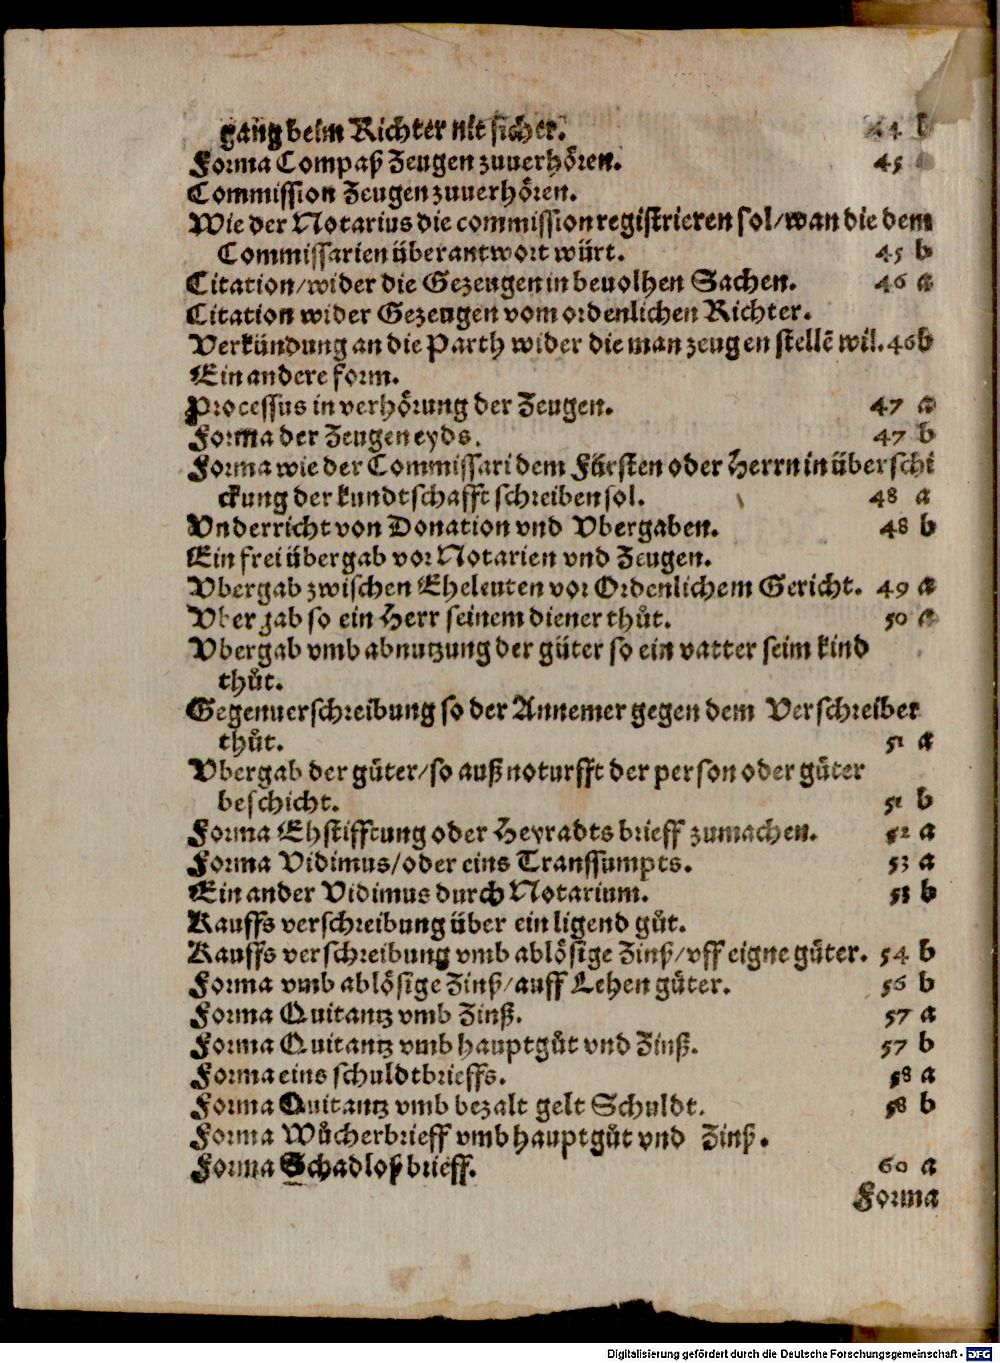 gang beim Richter nit sicher. 44 b
Forma Compaß Zeugen zuuerhören. 45
Commission Zeugen zuuerhören.
Wie der Notarius die commission registrieren sol/wan die dem
Commissarien überantwort würt. 45 b
Citation/wider die Gezeugen in beuolhen Sachen. 46 a
Citation wider Gezeugen vom ordenlichen Richter.
Verkündung an die Parth wider die man zeugen stellē wil. 46 b
Ein andere form.
Processus in verhörung der Zeugen. 47 a
Forma der Zeugen eyds. 47 b
Forma wie der Commissari dem Fürsten oder Herrn in überschi
ckung der kundtschafft schreiben sol. 48 a
Vnderricht von Donation vnd Vbergaben. 48 b
Ein frei übergab vor Notarien vnd Zeugen.
Vbergab zwischen Eheleuten vor Ordenlichem Gericht. 49 a
Vbergab so ein Herr seinem diener thůt. 50 a
Vbergab vmb abnutzung der güter so ein vatter seim kind
thůt.
Gegenuerschreibung so der Annemer gegen dem Verschreiber
thůt. 51 a
Vbergab der güter/so auß noturfft der person oder güter
beschicht. 51 b
Forma Ehstifftung oder Heyradts brieff zumachen. 52 a
Forma Vidimus/oder eins Transsumpts. 53 a
Ein ander Vidimus durch Notarium. 53 b
Kauffs verschreibung über ein ligend gůt.
Kauffs verschreibung vmb ablösige Zinß/vff eigne güter. 54 b
Forma vmb ablösige Zinß/auff Lehen güter. 56 b
Forma Quitantz vmb Zinß. 57 a
Forma Quitantz vmb hauptgůt vnd Zinß. 57 b
Forma eins schuldtbrieffs. 58 a
Forma Quitantz vmb bezalt gelt Schuldt. 58 b
Forma Wůcherbrieff vmb hauptgůt vnd Zinß.
Forma Schadloß brieff. 60 a
Forma
Digitalisierung gefördert durch die Deutsche Forschungsgemeinschaft - DFG